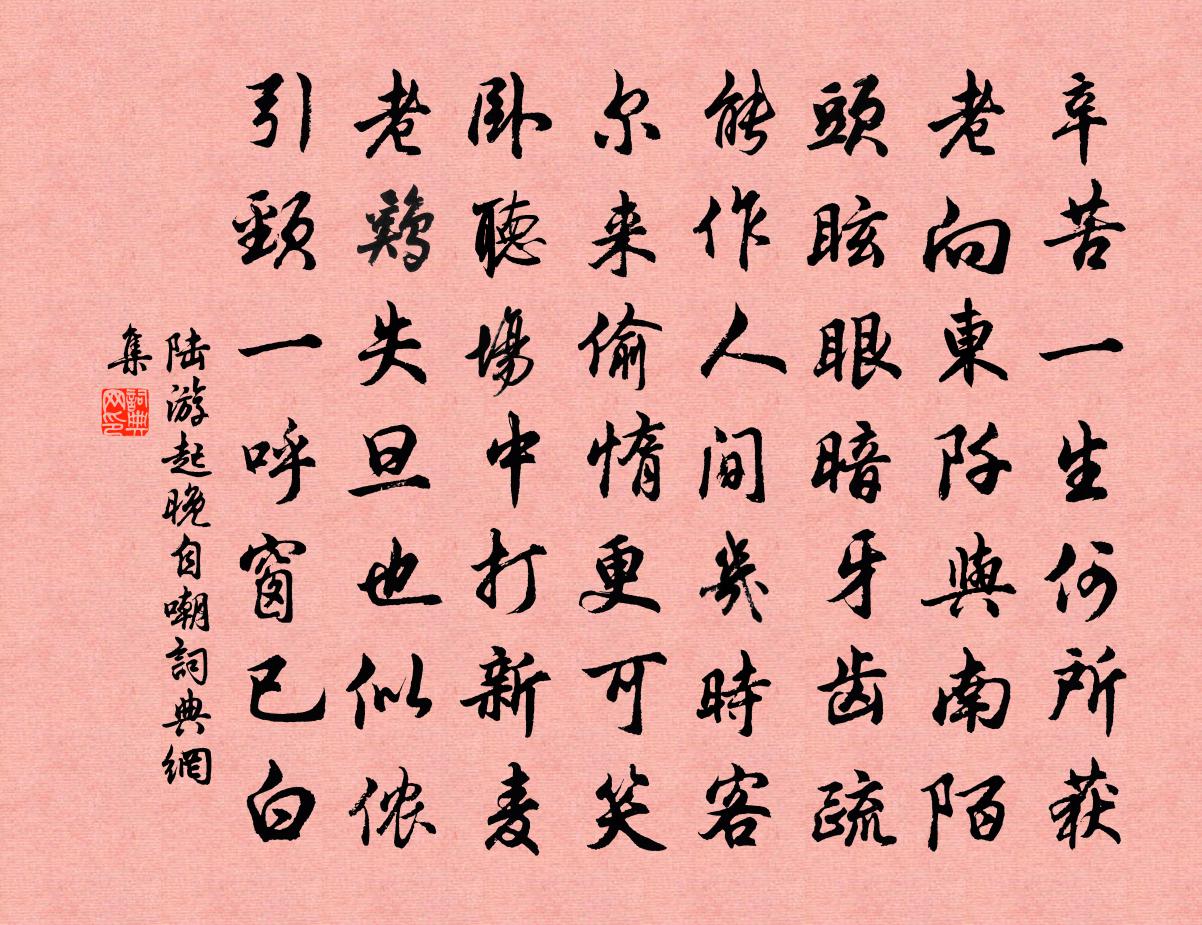 辛苦一生何所获
老向東阡與南陌
頭眩眼暗牙齿疏
能作人间幾時客
尔来偷惰更可笑
卧聽場中打新麦
老鷄失旦也似侬
引頸一呼窗已白
陆游起晚自嘲詞典網
集
詞典
网印